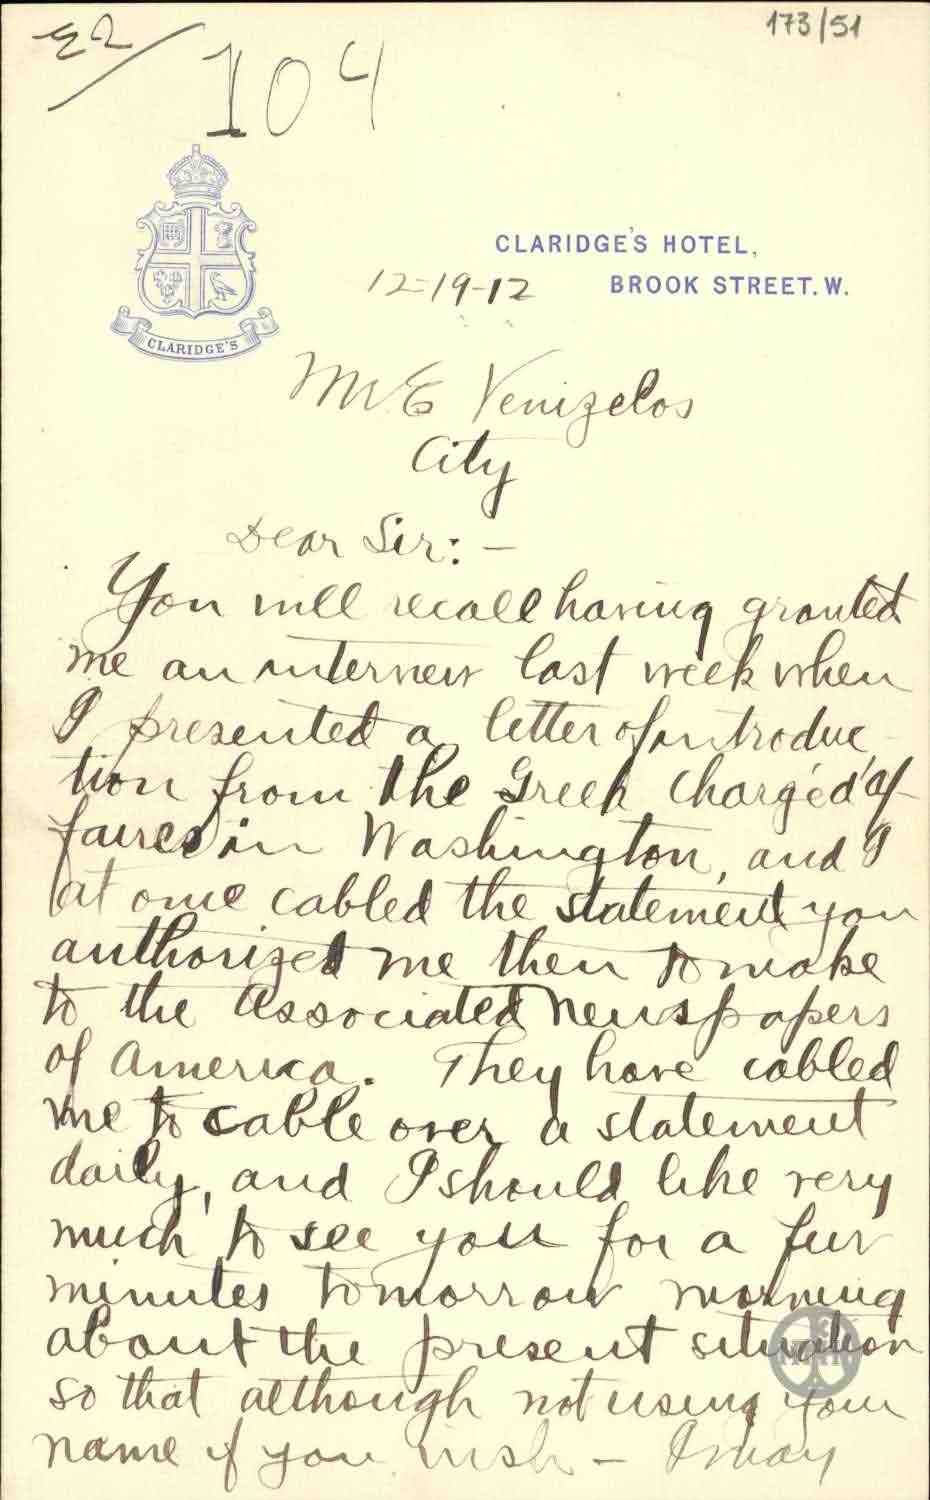 173/51
104
CLARIDGE'S
CLARIDGE'S HOTEL,
BROOK STREET. W.
12-19-12
Mr E Venizelos
City
Dear Sir: -
You will recall having granted
me an interview last week when
I presented a letter of introduc
tion from the Greek Chargé d'af
faires in Washington, and I
at once cabled the statement you
authorized me then to make
to the Associated Newspapers
of America. They have cabled
me to cable over a statement
daily, and I should like very
much to see you for a few
minutes tomorrow morning
about the present situation
so that although not using your
name if you wish - I may